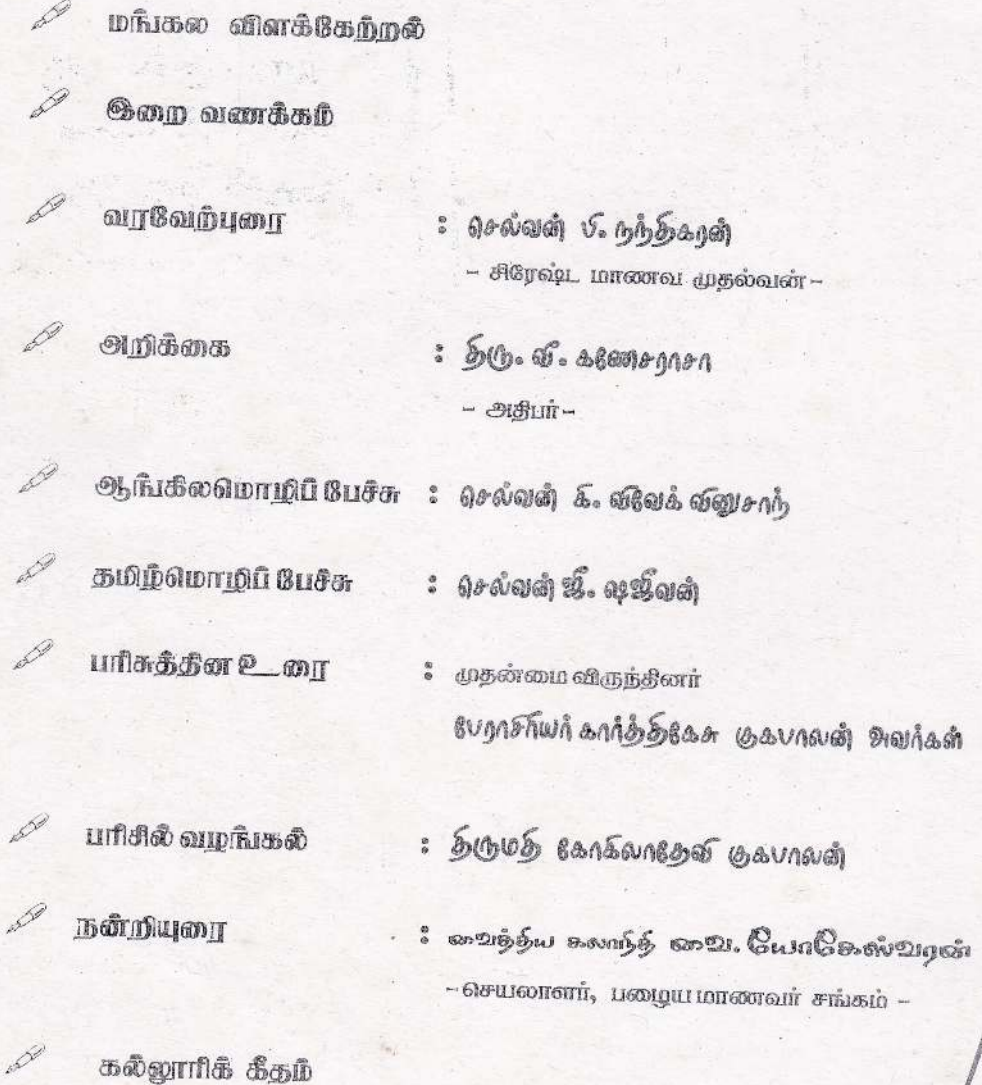 மங்கல விளக்கேற்றல்
இறை வணக்கம்
வரவேற்புரை : செல்வன் பி. நந்திகரன்
- சிரேஷ்ட மாணவ முதல்வன் -
அறிக்கை : திரு. வி. கணேசராசா
- அதிபர் -
ஆங்கிலமொழிப் பேச்சு : செல்வன் கி. விவேக் வினுசாந்
தமிழ்மொழிப் பேச்சு : செல்வன் ஜி. ஷஜீவன்
பரிசுத்தின உரை : முதன்மை விருந்தினர்
பேராசிரியர் கார்த்திகேசு குகபாலன் அவர்கள்
பரிசில் வழங்கல் : திருமதி கோகிலாதேவி குகபாலன்
நன்றியுரை : வைத்திய கலாநிதி வை. யோகேஸ்வரன்
- செயலாளர், பழைய மாணவர் சங்கம் -
கல்லூரிக் கீதம்